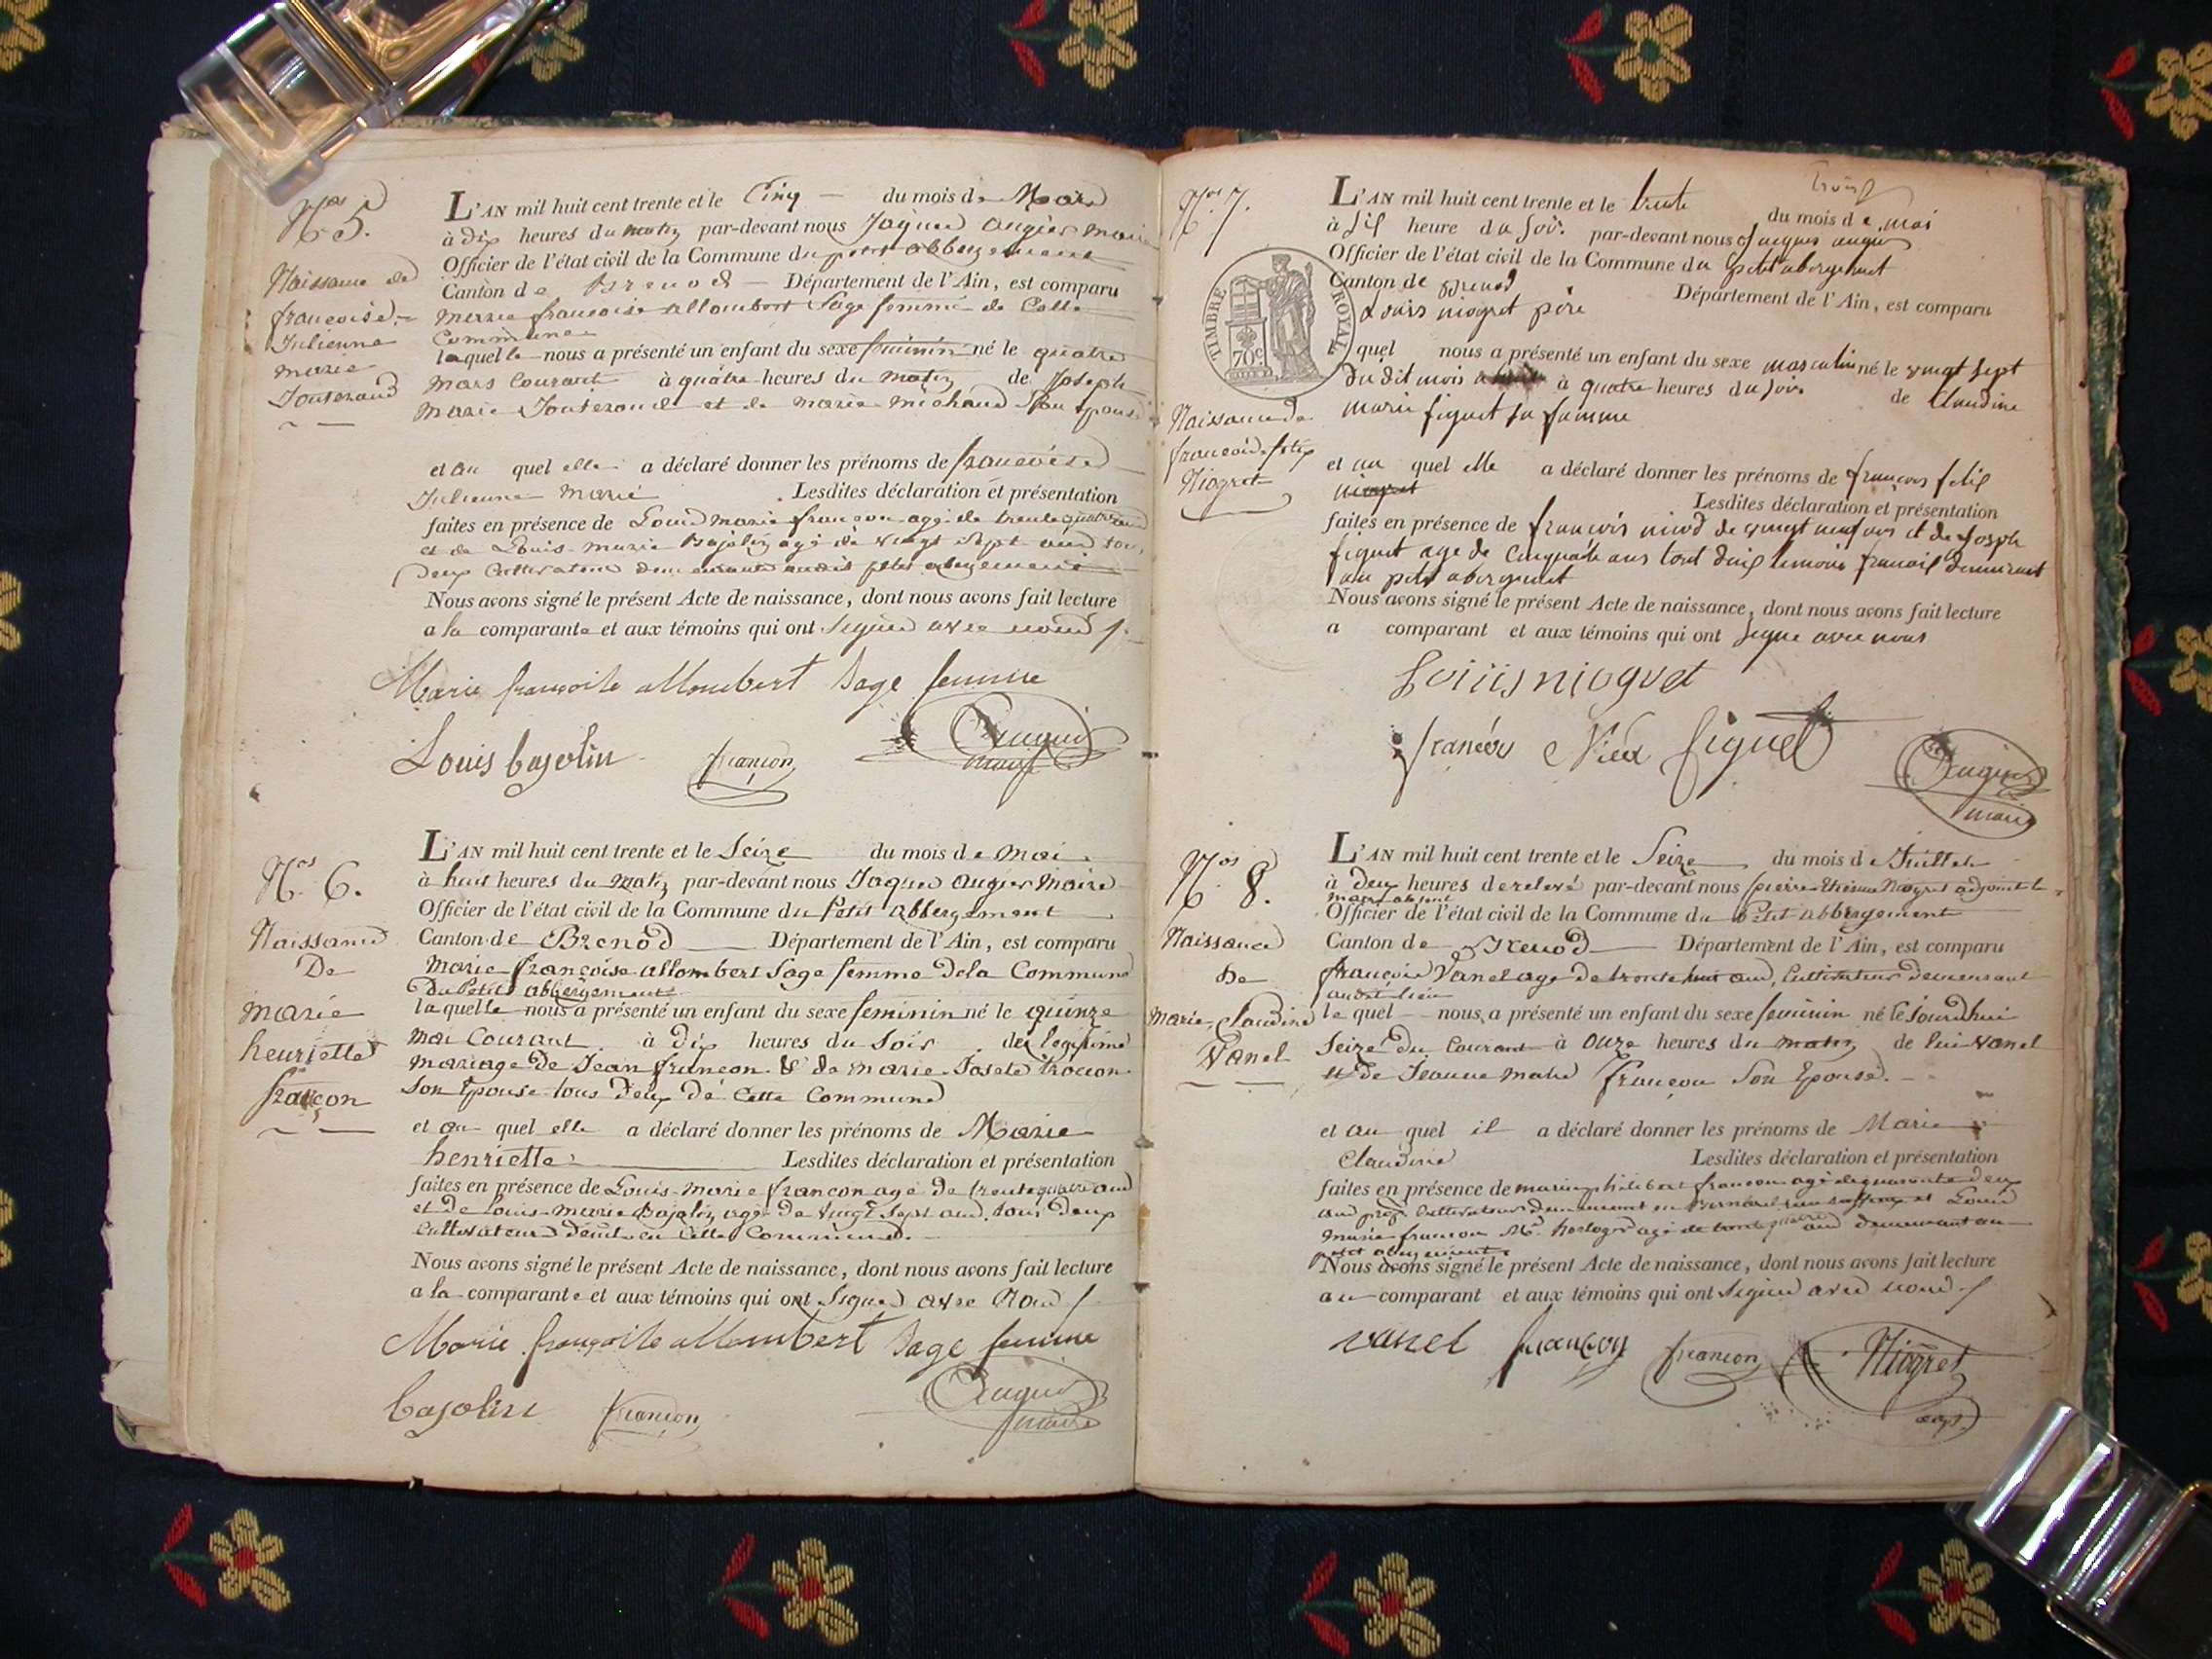 Nos 5.
Naissance de
françoise
Julienne
marie
Jouteraud
L'AN mil huit cent trente et le Cinq du mois de Mars
à dix heures du matin par-devant nous Jaques augier maire
Officier de l'état civil de la Commune du petit abbergement
Canton de Brenod Département de l'Ain, est comparu
marie françoise allombert Sage femme de Cette
Commune
laquelle nous a présenté un enfant du sexe feminin né le quatre
mars Courant à quatre heures du matin de Joseph
marie Jouteraud et de marie michaud Son epouse
et au quel elle a déclaré donner les prénoms de françoise
Julienne marie Lesdites déclaration et présentation
faites en présence de Louis marie françon agé de trente quatre ans
et de Louis marie Bajolin agé de vingt Sept ans tous
deux Cultivateurs demeurant audit petit abergement
Nous avons signé le présent Acte de naissance, dont nous avons fait lecture
a la comparante et aux témoins qui ont Signés avec nous
Marie françoise allombert Sage femme
Louis bajolin françon Augier
maire
Nos 6.
Naissance
De
marie
henriette
françon
L'AN mil huit cent trente et le Seize du mois de mai
à huit heures du matin par-devant nous Jaques augier Maire
Officier de l'état civil de la Commune du Petit abbergement
Canton de Brenod Département de l'Ain, est comparu
Marie françoise allombert Sage femme De la Commune
Du Petit abbergement
laquelle nous a présenté un enfant du sexe feminin né le quinze
mai Courant à dix heures du Soir du legitime
mariage de Jean françon & de marie Josete
Son Epouse tous deux de Cette Commune
et au quel elle a déclaré donner les prénoms de Marie
henriette Lesdites déclaration et présentation
faites en présence de Louis marie françon agé de trente quatre ans
et de Louis marie Bajolin agé de vingt Sept ans tous deux
Cultivateurs demt en Cette Commune
Nous avons signé le présent Acte de naissance, dont nous avons fait lecture
a la comparante et aux témoins qui ont Signés avec Nous
Marie françoise allombert Sage femme
bajolin françon Augier
maire
trois
Nos 7.
TIMBRE ROYAL
70c
Naissance de
françois felix
Niogret
L'AN mil huit cent trente et le trente du mois de mai
à six heure du soir par-devant nous Jacques augier
Officier de l'état civil de la Commune du petit abergement
Canton de Brenod Département de l'Ain, est comparu
Louis niogret père
quel nous a présenté un enfant du sexe masculin né le vingt sept
du dit mois à quatre heures du soir de Claudine
marie figuet sa famme
et au quel elle a déclaré donner les prénoms de françois felix
niogret Lesdites déclaration et présentation
faites en présence de francois niod de vingt neuf ans et de Joseph
figuet age de Cinquante ans tout deux temoins francais demeurant
au petit abergement
Nous avons signé le présent Acte de naissance, dont nous avons fait lecture
a comparant et aux témoins qui ont signe avec nous
Louis niogret
francois Niod figuet
Augier
maire
Nos 8.
Naissance
De
Marie Claudine
Vanel
L'AN mil huit cent trente et le Seize du mois de Juillet
à deux heures de relevé par-devant nous pierre Etienne Niogret adjoint le
maire absent
Officier de l'état civil de la Commune du Petit abbergement
Canton de Brenod Département de l'Ain, est comparu
françois Vanel agé de trente huit ans, Cultivateur demeurant
audit lieu
le quel nous a présenté un enfant du sexe feminin né le Jourdhui
Seize du Courant à onze heures du matin de lui Vanel
et de Jeanne françon Son Epouse.
et au quel il a déclaré donner les prénoms de Marie
Claudine Lesdites déclaration et présentation
faites en présence de marin philibert françon agé de quarante deux
ans Cultivateur demeurant et Louis
marie françon Md horloger agé de trente quatre ans demeurant au
petit abergement
Nous avons signé le présent Acte de naissance, dont nous avons fait lecture
au comparant et aux témoins qui ont Signés avec nous
vanel françon françon Niogret